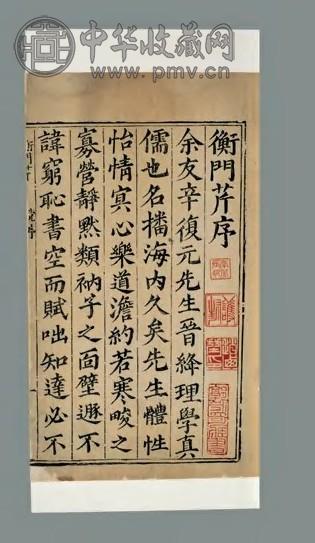 中华收藏网
www.pmv.cn
衡門芹序
余友辛復元先生晉絳理學真
儒也名播海内久矣先生體性
怡情冥心樂道澹約若寒畯之
寡營靜默類衲子之面壁遯不
諱窮恥書空而賦咄知達必不